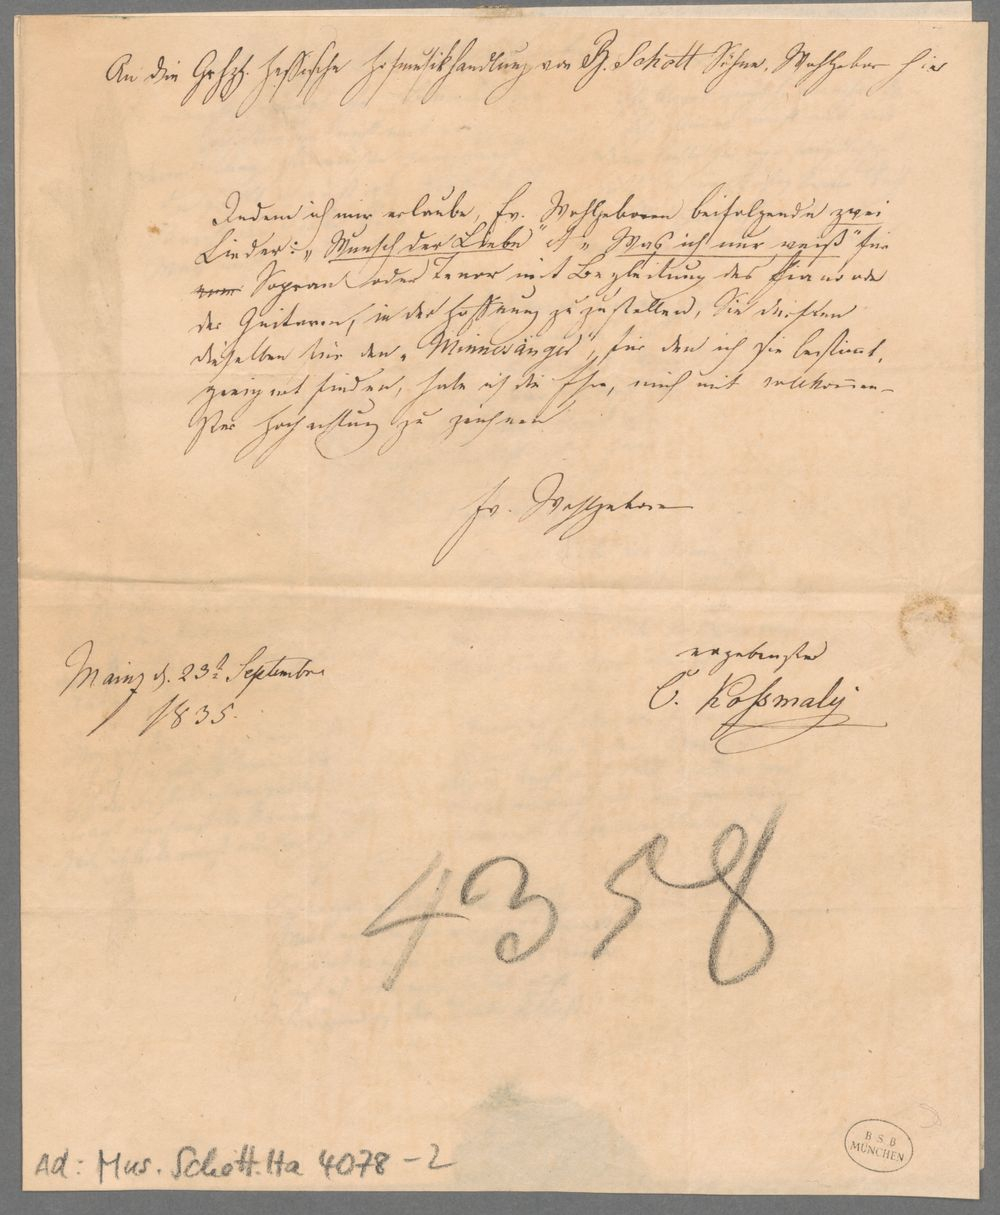 An die Grhzl. Hessische Hofmusikhandlung von B. Schott Söhne, Wohlgebor hier
Indem ich mir erlaube, Ew. Wohlgeboren beifolgende zwei
Lieder: „Wunsch der Liebe" & „Was ich nur weiß" für
Sopran oder Tenor mit Begleitung des Piano oder
der Guitarre, in der Hoffnung zuzustellen, Sie dürften
dieselben für den „Minnesänger", für den ich sie bestimmt,
geeignet finden, habe ich die Ehre, mich mit vollkommen-
ster Hochachtung zu zeichnen
Ew. Wohlgeboren
ergebenster
C. Koßmaly
Mainz d. 23t Septembre
1835.
4358
Ad: Mus. Schott. Ha 4078-2
B S B
MÜNCHEN